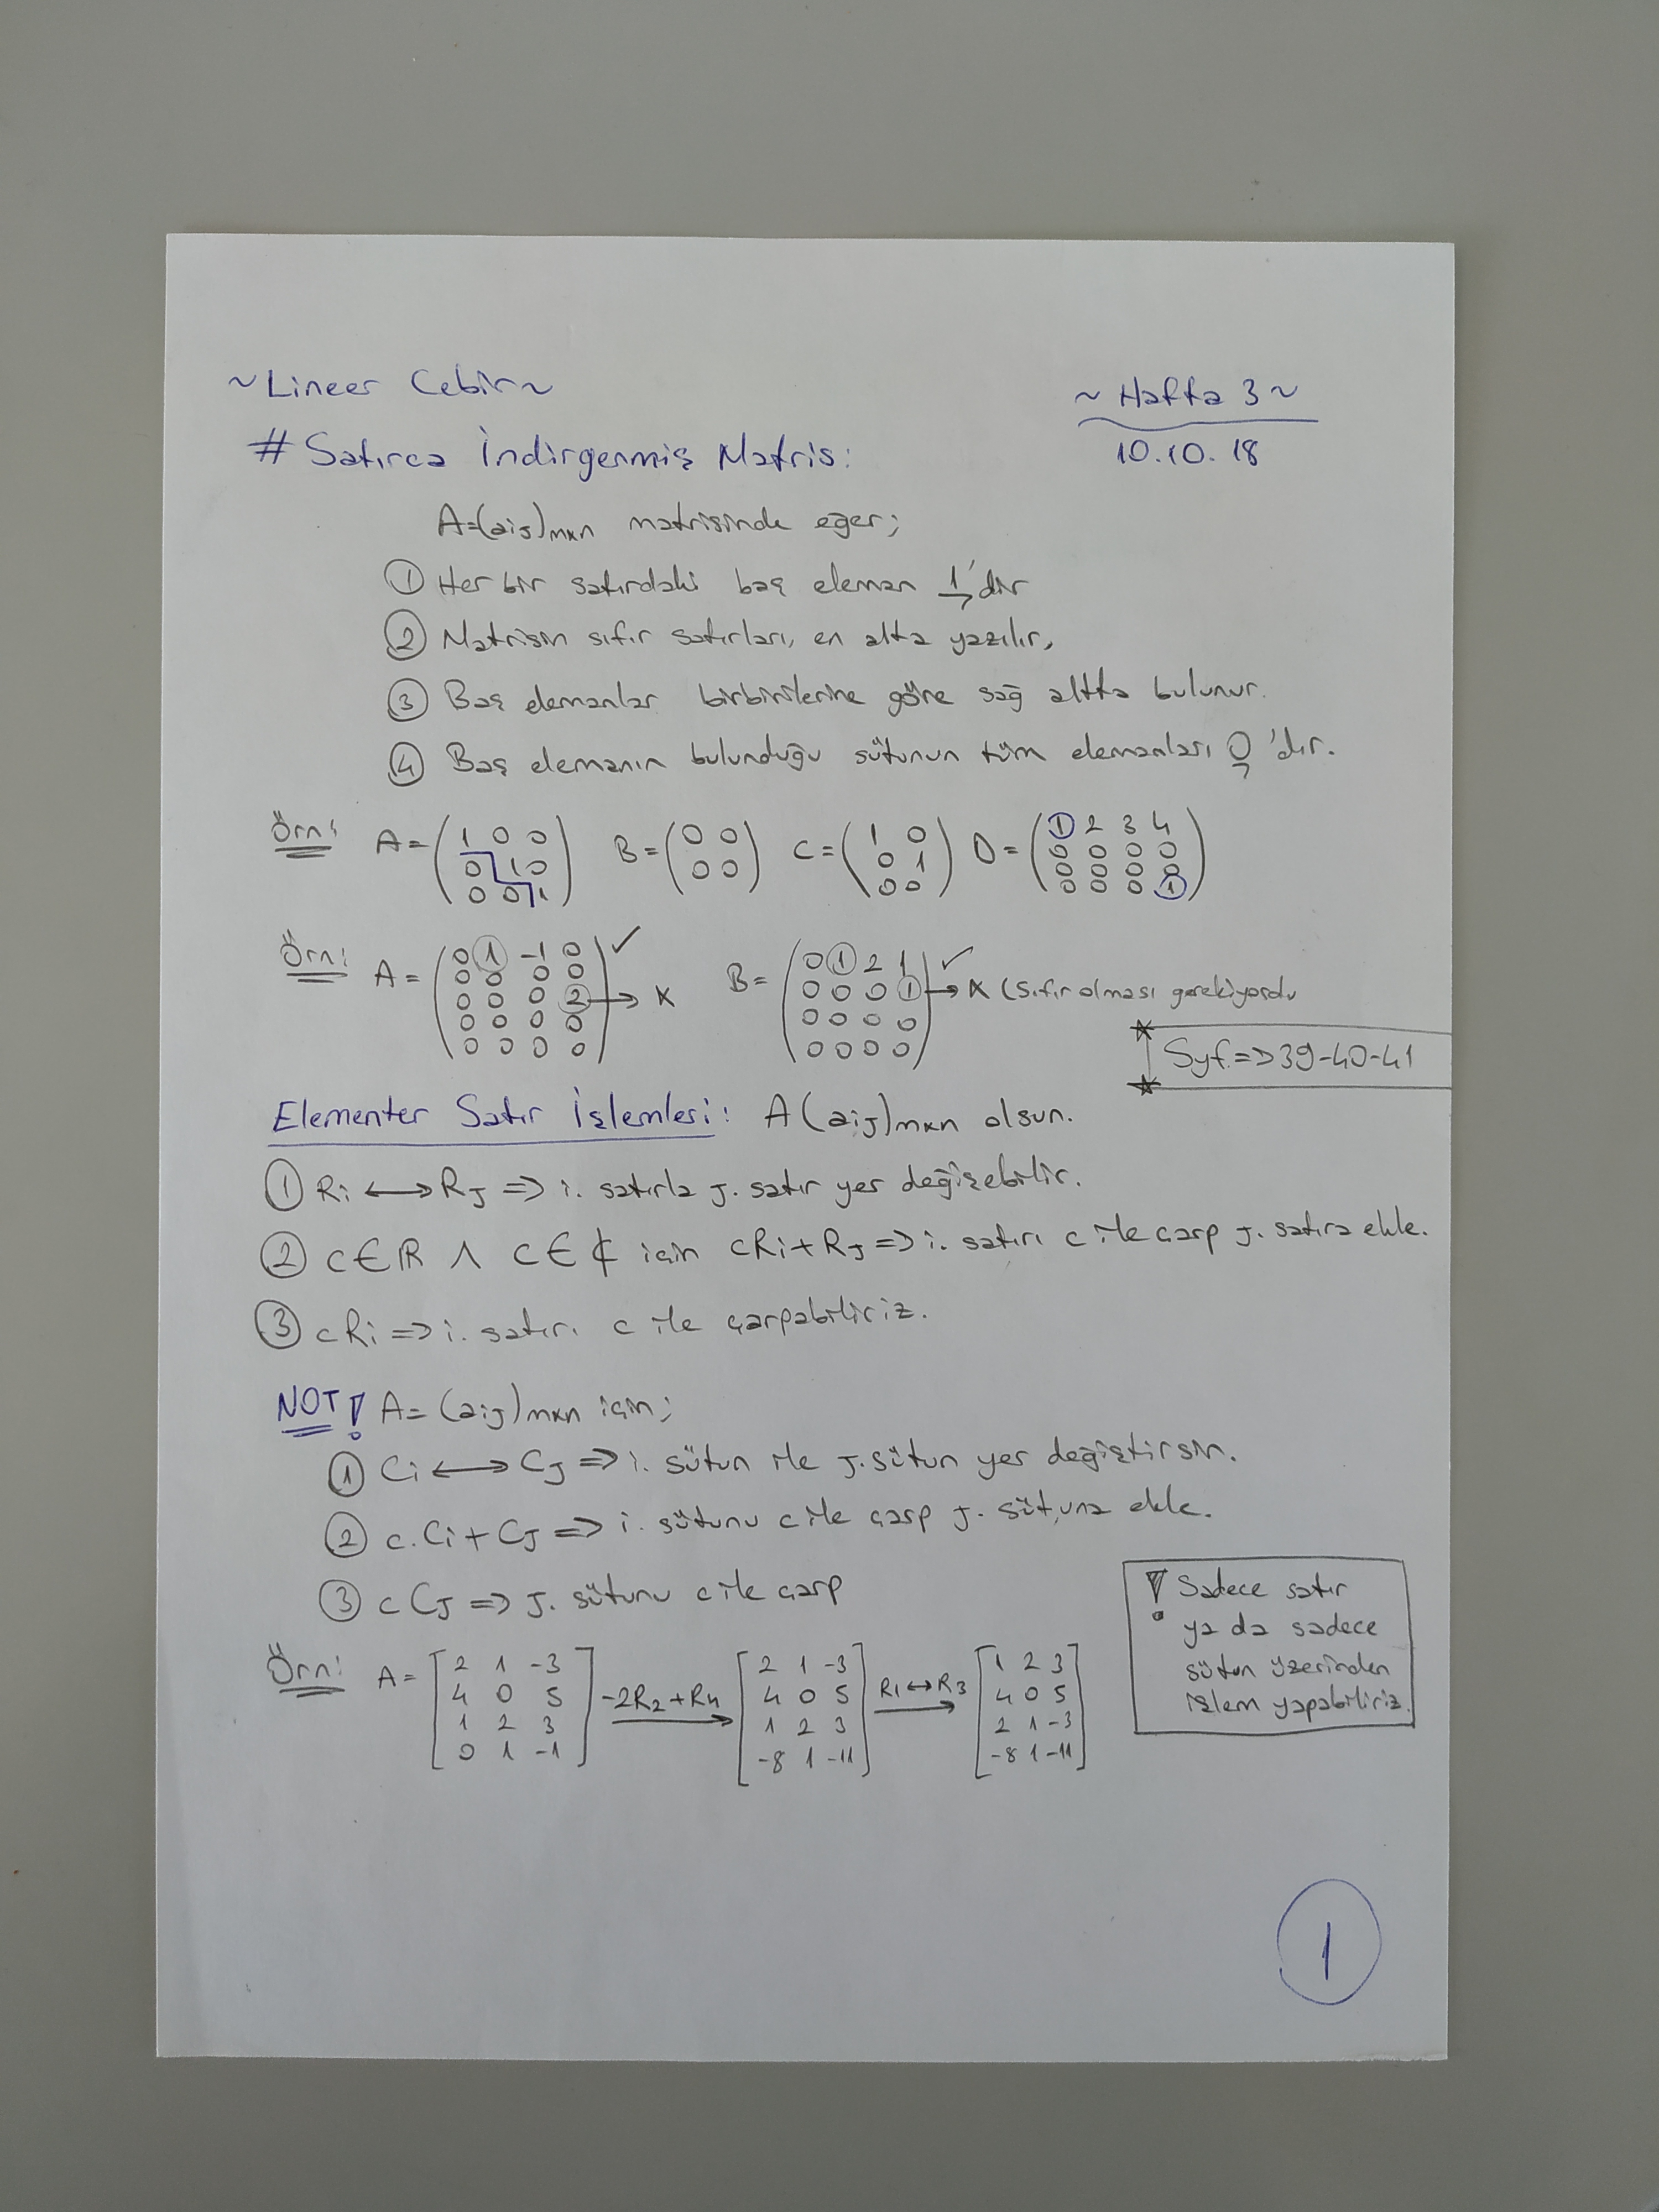 ~Lineer Cebir~
~Hafta 3~
10.10.18
# Satırca İndirgenmiş Matris:
A=(aij)mxn matrisinde eğer;
① Her bir satırdaki baş eleman 1'dir
② Matrisin sıfır satırları, en alta yazılır,
③ Baş elemanlar birbirlerine göre sağ altta bulunur.
④ Baş elemanın bulunduğu sütunun tüm elemanları 0'dır.
Örn: A= B= C= D=
1 0 0
0 1 0
0 0 1
0 0
0 0
1 0
0 1
0 0
① 2 3 4
0 0 0 0
0 0 0 ①
Örn: A= B=
0 ① -1 0
0 0 0 0
0 0 0 ② → x
0 0 0 0
0 0 0 0
✓
0 ① 2 1 ✓
0 0 0 ① → x (sıfır olması gerekiyordu
0 0 0 0
0 0 0 0
Syf=>39-40-41
Elementer Satır İşlemleri: A(aij)mxn olsun.
① Ri ⟷ RJ => i. satırla J. satır yer değişebilir.
② c∈R ∧ c∈₵ için cRi+RJ => i. satırı c ile çarp J. satıra ekle.
③ cRi => i. satırı c ile çarpabiliriz.
NOT! A=(aij)mxn için;
① Ci ⟷ CJ => i. sütun ile J. sütun yer değiştirsin.
② c.Ci+CJ => i. sütunu c ile çarp J. sütuna ekle.
③ cCJ => J. sütunu c ile çarp
! Sadece satır
ya da sadece
sütun üzerinden
işlem yapabiliriz.
Örn: A= -2R2+R4 R1↔R3
2 1 -3
4 0 5
1 2 3
0 1 -1
2 1 -3
4 0 5
1 2 3
-8 1 -11
1 2 3
4 0 5
2 1 -3
-8 1 -11
1